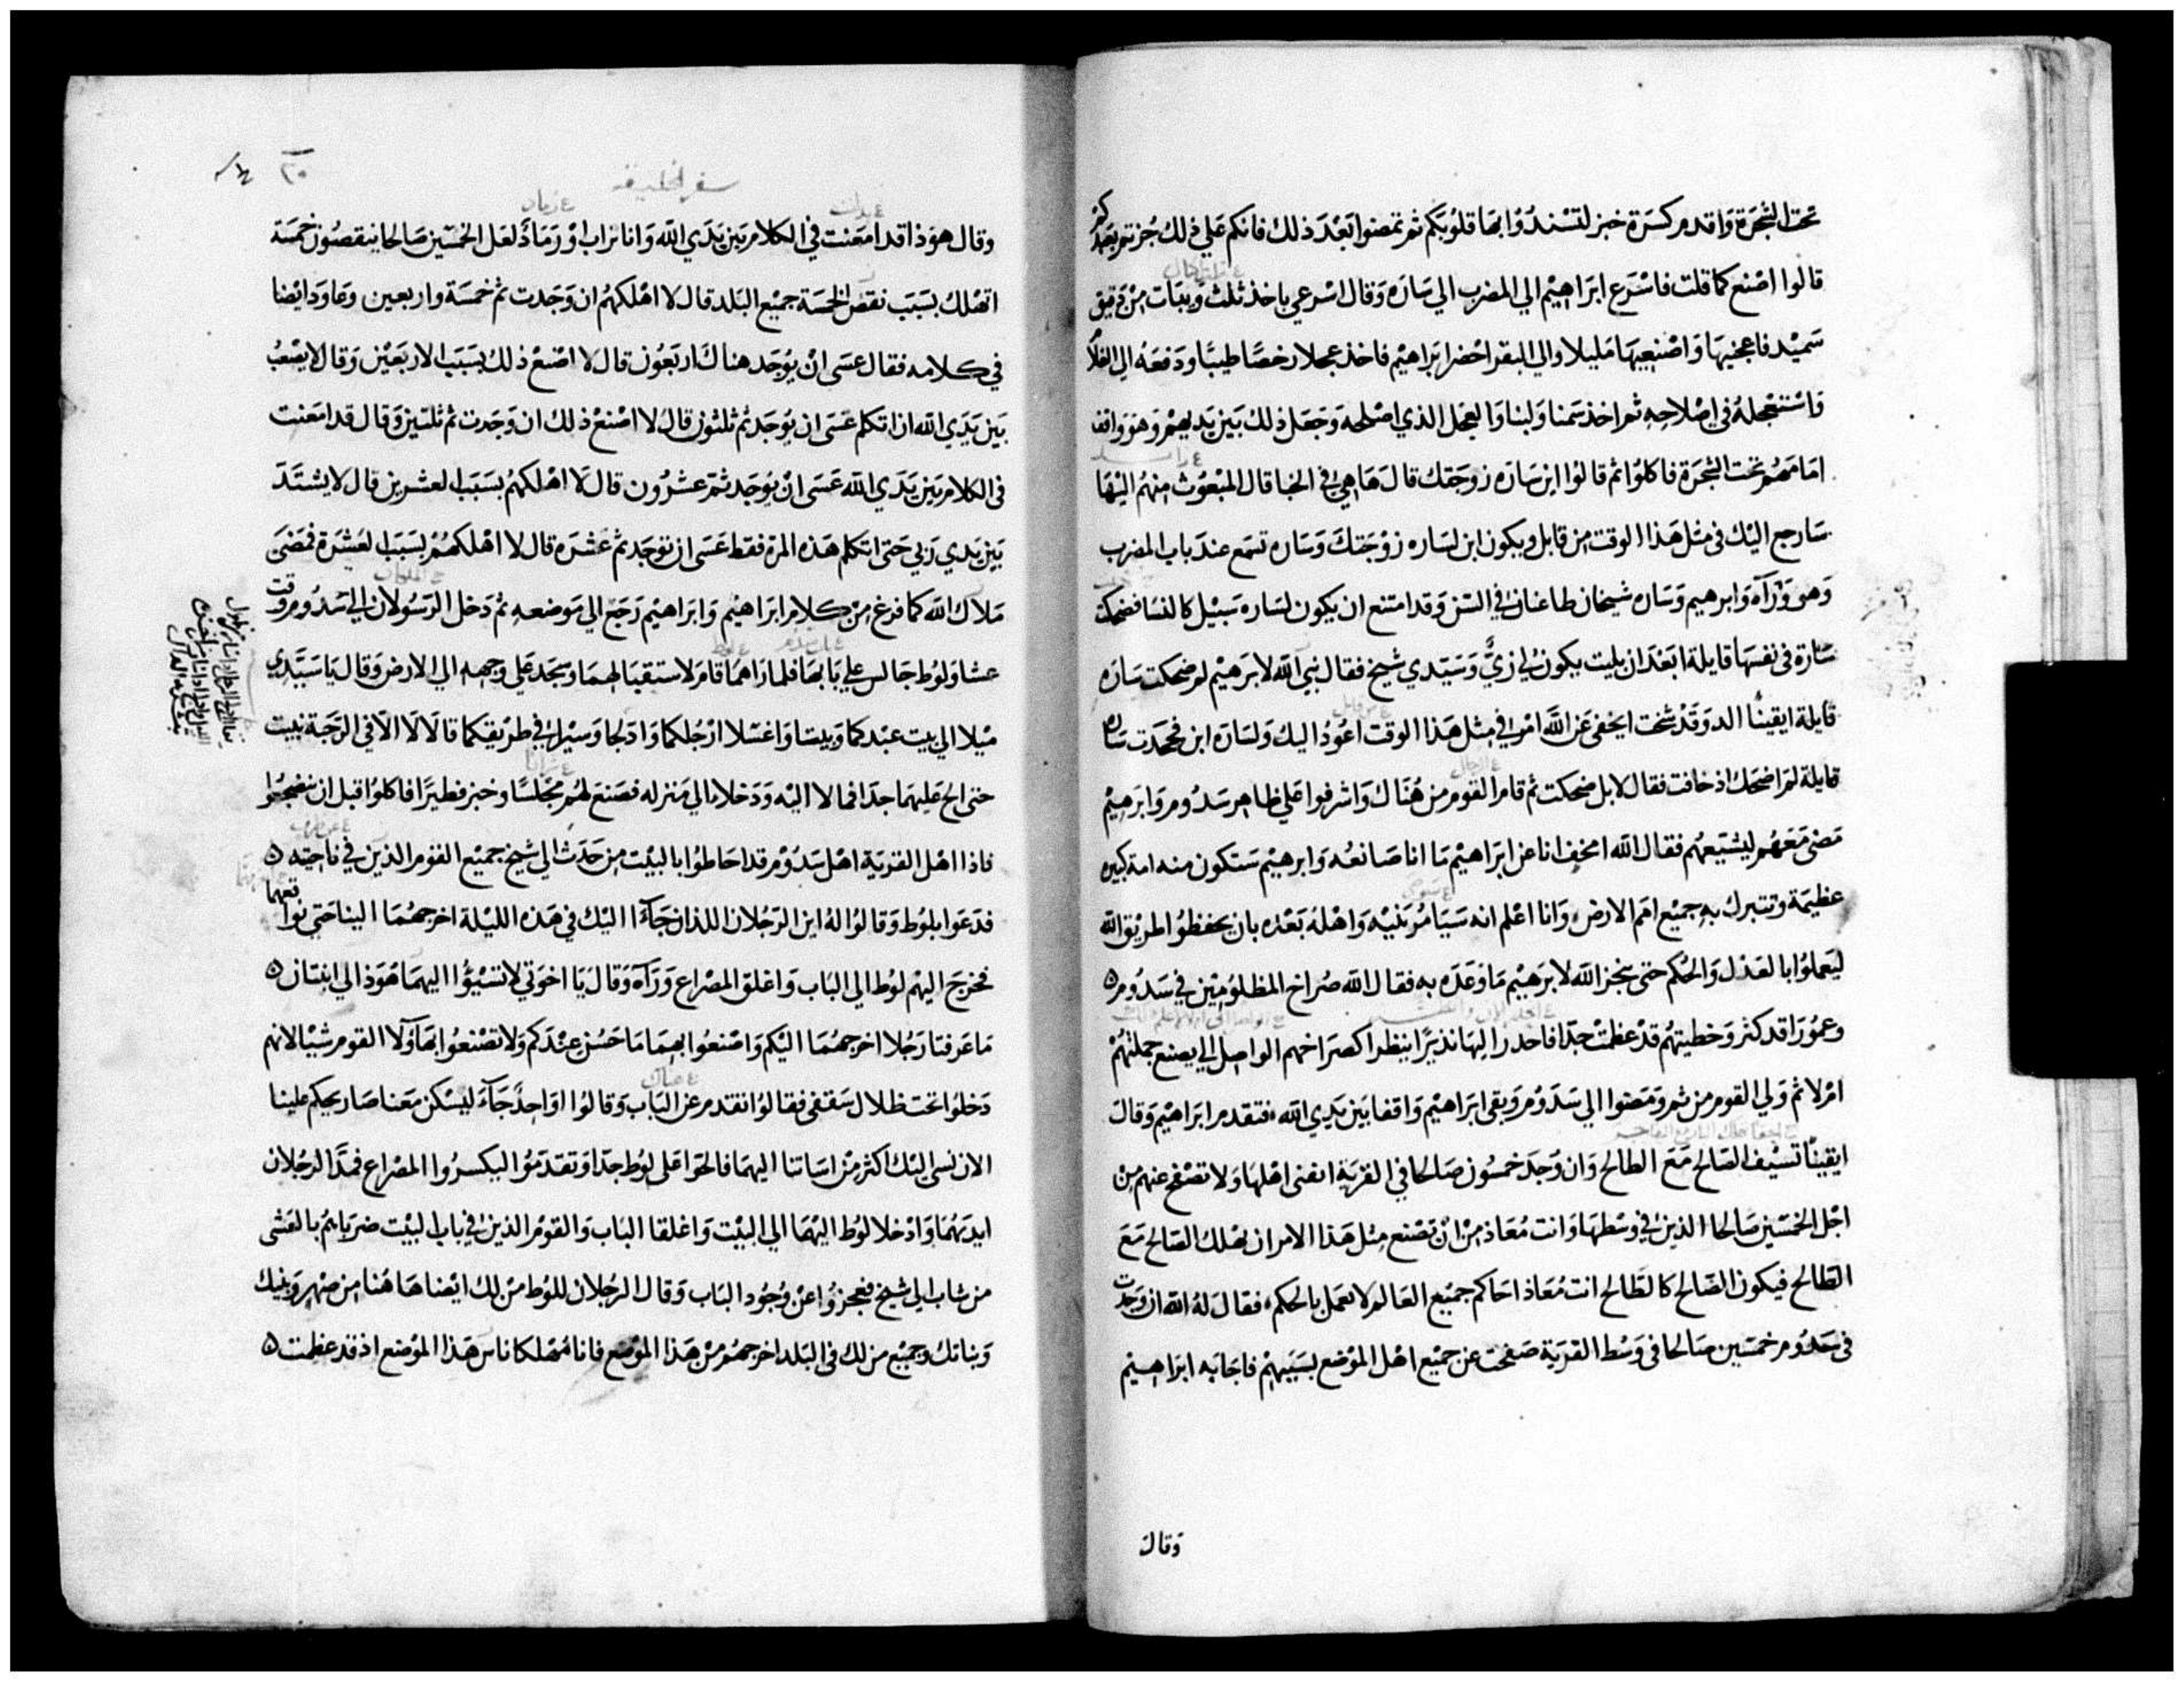 تحت الشجرة واقدم كسرة خبز لتسندوا بها قلوبكم ثم تمضوا بعد ذلك فانكم على ذلك جزتم بعبدكم
قالوا اصنع كما قلت فاسرع ابراهيم الي المضرب الي سارة وقال اسرعي باخذ ثلث ويبات من دقيق
سميد فاعجنيها واصنعيها مليلا والي البقر احضر ابراهيم فاخذ عجلا رخصا طيبا ودفعه الي الغلام
واستعجله في اصلاحه ثم اخذ سمنا ولبنا والعجل الذي اصلحه وجعل ذلك بين يديهم وهو واقف
امامهم تحت الشجرة فاكلوا ثم قالوا اين سارة زوجتك قال ها هي في الخبا قال المبعوث منهم اليها
سارجع اليك في مثل هذا الوقت من قابل ويكون ابن لساره زوجتك وساره تسمع عند باب المضرب
وهو وراه وابرهيم وساره شيخان طاعنان في السن وقد امتنع ان يكون لساره سبيل كالنسا فضحكت
سارة في نفسها قايلة ابعد ان بليت يكون لي زي وسيدي شيخ فقال نبي الله لابرهيم لم ضحكت ساره
قايلة ايقينا الد وقد شخت ايخفى عن الله امر في مثل هذا الوقت اعود اليك ولسارة ابن فجحدت ساره
قايلة لم اضحك اذ خافت فقال لا بل ضحكت ثم قام القوم من هناك واشرفوا على ظاهر سدوم وابرهيم
مضى معهم ليشيعهم فقال الله امخف انا عن ابراهيم ما انا صانعه وابرهيم ستكون منه امة كبيره
عظيمة وتتبرك به جميع امم الارض وانا اعلم انه سيامر بنيه واهله بعده بان يحفظوا طريق الله
ليعملوا بالعدل والحكم حتى ينجز الله لابرهيم ما وعده به فقال الله صراخ المظلومين في سدوم
وعمورا قد كثر وخطيتهم قد عظمت جدا فاحدر اليها نذيرا ينظر اكصراخهم الواصل الي يصنع جملتهم
ام لا ثم ولي القوم من ثم ومضوا الي سدوم وبقي ابراهيم واقفا بين يدي الله فتقدم ابراهيم وقال
ايقينا تسيف الصالح مع الطالح وان وجد خمسون صالحا في القرية اتفنى اهلها ولا تصفح عنهم من
اجل الخمسين صالحا الذين في وسطها وانت معاذ من ان تصنع مثل هذا الامر ان تهلك الصالح مع
الطالح فيكون الصالح كالطالح انت معاذ احاكم جميع العالم لا يعمل بالحكم فقال له الله ان وجدت
في سدوم خمسين صالحا في وسط القرية صفحت عن جميع اهل الموضع بسببهم فاجابه ابراهيم
وقال
سفر الخليقة
٢٠
وقال هوذا قد امعنت في الكلام بين يدي الله وانا تراب او رماد لعل الخمسين صالحا ينقصون خمسة
اتهلك بسبب نقص الخمسة جميع البلد قال لا اهلكهم ان وجدت ثم خمسة واربعين وعاود ايضا
في كلامه فقال عسى ان يوجد هناك اربعون قال لا اصنع ذلك بسبب الاربعين وقال لا يصعب
بين يدي الله ان اتكلم عسى ان يوجد ثم ثلثون قال لا اصنع ذلك ان وجدت ثم ثلثين وقال قد امعنت
في الكلام بين يدي الله عسى ان يوجد ثم عشرون قال لا اهلكهم بسبب العشرين قال لا يشتد
بين يدي ربي حتى اتكلم هذه المرة فقط عسى ان توجد ثم عشرة قال لا اهلكهم بسبب العشرة فمضى
ملاك الله كما فرغ من كلام ابراهيم وابراهيم رجع الي موضعه ثم دخل الرسولان الي سدوم وقت
عشا ولوط جالس علي بابها فلما راهما قام لاستقبالهما وسجد علي وجهه الي الارض وقال يا سيدي
ميلا الي بيت عبدكما وبيتا واغسلا ارجلكما وادلجا وسيرا في طريقكما قالا لا الا في الرحبة نبيت
حتى الح عليهما جدا فمالا اليه ودخلا الي منزله فصنع لهم مجلسا وخبز فطيرا فاكلوا قبل ان ينضجعوا
فاذا اهل القرية اهل سدوم قد احاطوا بالبيت من حدث الي شيخ جميع القوم الذين في ناحيته
فدعوا بلوط وقالوا له اين الرجلان اللذان جاءا اليك في هذه الليلة اخرجهما الينا حتى نواقعهما
فخرج اليهم لوط الي الباب واغلق المصراع وراه وقال يا اخوتي لا تسيؤا اليهما هوذا لي ابنتان
ما عرفتا رجلا اخرجهما اليكم واصنعوا بهما ما حسن عندكم ولا تصنعوا بهاولا القوم شيا لانهم
دخلوا تحت ظلال سقفي فقالوا تقدم عن الباب وقالوا اواحد جاء ليسكن معنا صار يحكم علينا
الان نسي اليك اكثر من اساتنا اليهما فالحوا على لوط جدا وتقدموا ليكسروا المصراع فمدا الرجلان
ايديهما وادخلا لوط اليهما الي البيت واغلقا الباب والقوم الذين في باب البيت ضرباهم بالعشى
من شاب الي شيخ فعجزوا عن وجود الباب وقال الرجلان للوط من لك ايضا هاهنا من صهر وبنيك
وبناتك وجميع من لك في البلد اخرجهم من هذا الموضع فانا مهلكا ناس هذا الموضع اذ قد عظمت